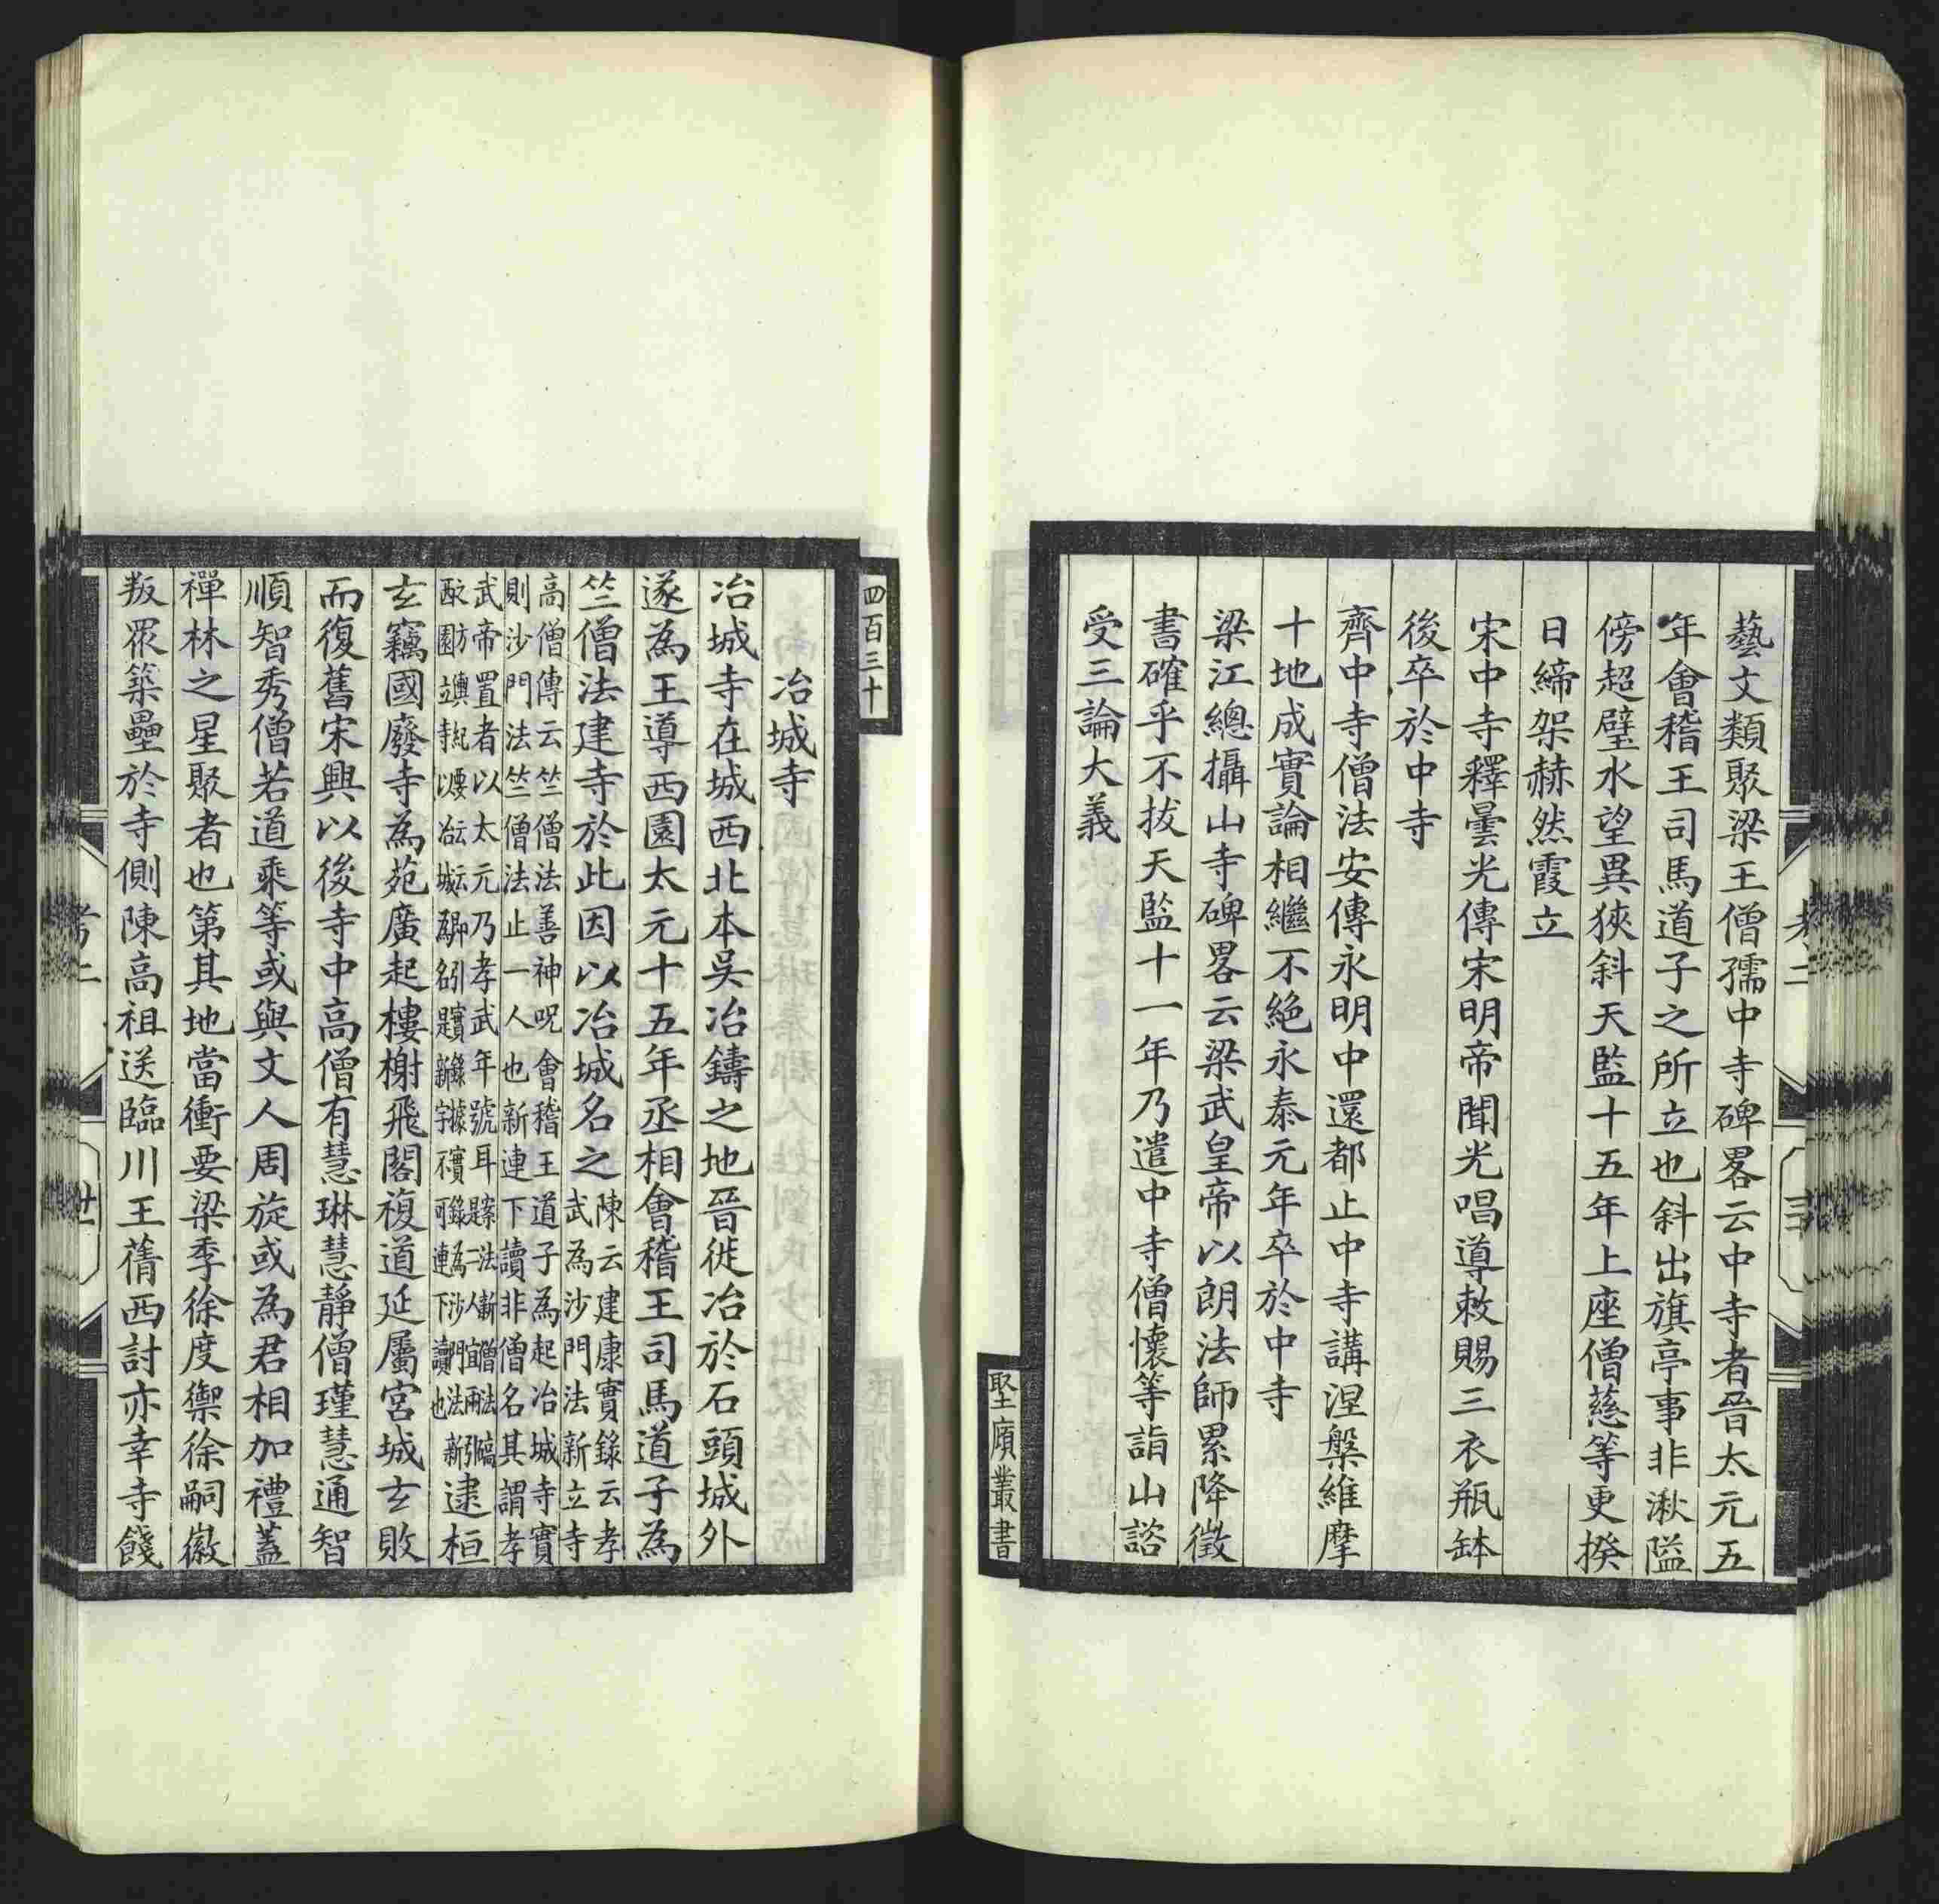 藝文類聚梁王僧孺中寺碑畧云中寺者晉太元五
年會稽王司馬道子之所立也斜出旗亭事非湫隘
傍超壁水望異狹斜天監十五年上座僧慈等更揆
日締架赫然霞立
宋中寺釋曇光傳宋明帝聞光唱導敕賜三衣瓶缽
後卒於中寺
齊中寺僧法安傳永明中還都止中寺講涅槃維摩
十地成實論相繼不絕永泰元年卒於中寺
梁江總攝山寺碑畧云梁武皇帝以朗法師累降徵
書確乎不拔天監十一年乃遣中寺僧懷等詣山諮
受三論大義
堅廎叢書
四百三十
冶城寺
冶城寺在城西北本吳冶鑄之地晉徙冶於石頭城外
遂為王導西園太元十五年丞相會稽王司馬道子為
竺僧法建寺於此因以冶城名之陳云建康實錄云孝
武為沙門法新立寺
高僧傳云竺僧法善神呪會稽王道子為起冶城寺實
則沙門法竺僧法止一人也新連下讀非僧名其謂孝
武帝置者以太元乃孝武年號耳
逮桓
玄竊國廢寺為苑廣起樓榭飛閣複道延屬宮城玄敗
而復舊宋興以後寺中高僧有慧琳慧靜僧瑾慧通智
順智秀僧若道乘等或與文人周旋或為君相加禮蓋
禪林之星聚者也第其地當衝要梁季徐度禦徐嗣徽
叛眾築壘於寺側陳高祖送臨川王蒨西討亦幸寺餞